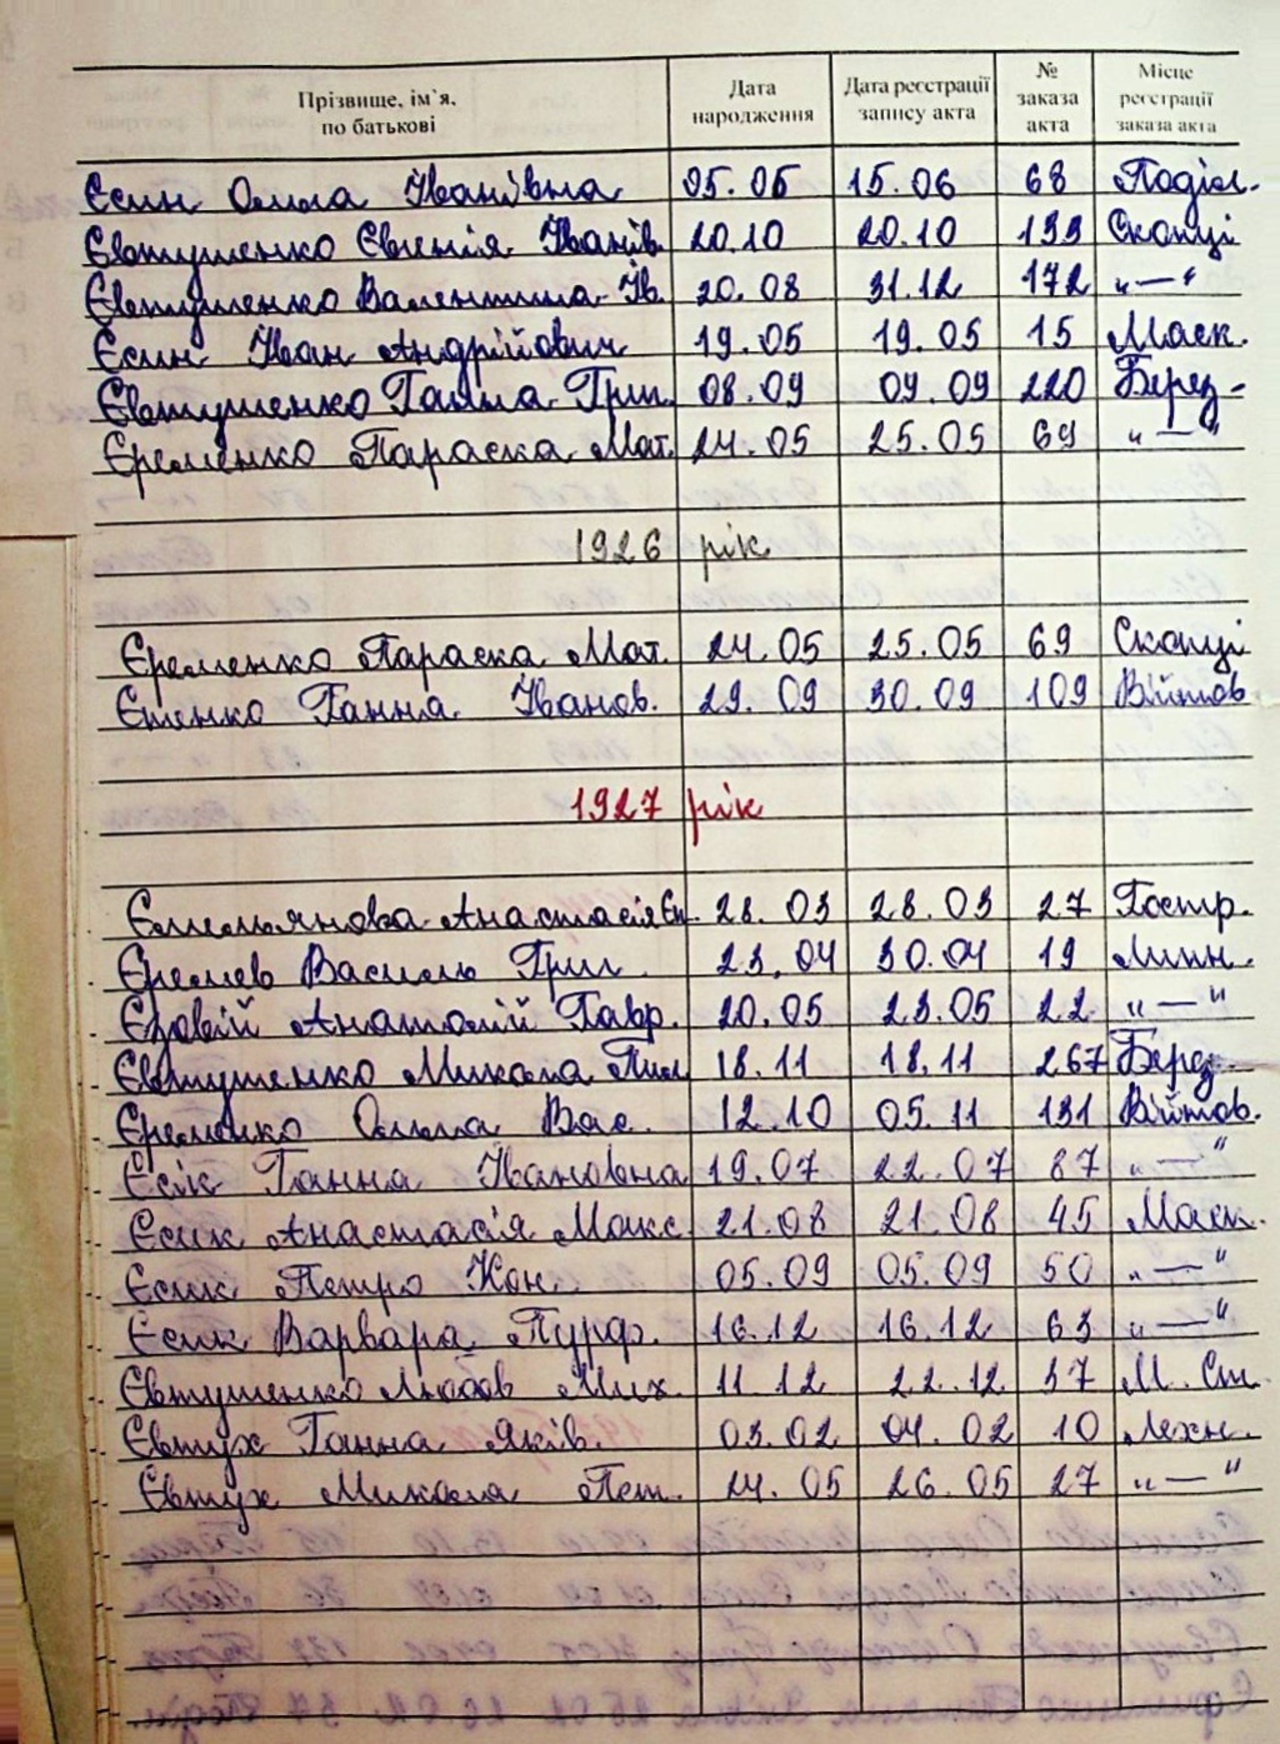 Прізвище, ім`я, по батькові Дата народження Дата реєстрації запису акта № заказа акта Місце реєстрації заказа акта
Єсин Ольга Іванівна 05.06 15.06 68 Поділ.
Євтушенко Євгенія Іванів. 20.10 20.10 133 Скопці
Євтушенко Валентина Ів. 20.08 31.12 172 "—"
Єсин Іван Андрійович 19.05 19.05 15 Маск.
Євтушенко Ганна Григ. 08.09 09.09 220 Берез-
Єременко Параска Мат. 24.05 25.05 69 "—"
1926 рік
Єременко Параска Мат. 24.05 25.05 69 Скопці
Єщенко Ганна Іванов. 29.09 30.09 109 Війтов
1927 рік
Ємельянова Анастасія Єв. 28.03 28.03 27 Гостр.
Єремєв Василь Григ. 23.04 30.04 19 Линн.
Єзовій Анатолій Гавр. 20.05 23.05 22 "—"
Євтушенко Микола Пил 18.11 18.11 267 Берез-
Єременко Ольга Вас. 12.10 05.11 131 Війтов.
Єсік Ганна Івановна 19.07 22.07 87 "—"
Єсик Анастасія Макс 21.08 21.08 45 Маск.
Єсик Петро Кон. 05.09 05.09 50 "—"
Єсик Варвара 16.12 16.12 63 "—"
Євтушенко Любов Мих. 11.12 22.12 37 М. Ст
Євтух Ганна Яків. 03.02 04.02 10 Лехн.
Євтух Микола Пет. 24.05 26.05 27 "—"